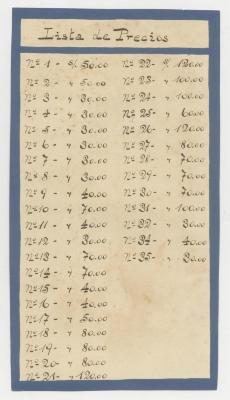 Lista de Precios
Nº 1 - S/ 50.00
Nº 2 - " 50.00
Nº 3 - " 30.00
Nº 4 - " 30.00
Nº 5 - " 30.00
Nº 6 - " 30.00
Nº 7 - " 30.00
Nº 8 - " 30.00
Nº 9 - " 40.00
Nº 10 - " 70.00
Nº 11 - " 40.00
Nº 12 - " 30.00
Nº 13 - " 70.00
Nº 14 - " 70.00
Nº 15 - " 40.00
Nº 16 - " 40.00
Nº 17 - " 50.00
Nº 18 - " 80.00
Nº 19 - " 80.00
Nº 20 - " 80.00
Nº 21 - " 120.00
Nº 22 - S/ 120.00
Nº 23 - " 100.00
Nº 24 - " 100.00
Nº 25 - " 60.00
Nº 26 - " 120.00
Nº 27 - " 80.00
Nº 28 - " 70.00
Nº 29 - " 70.00
Nº 30 - " 70.00
Nº 31 - " 100.00
Nº 32 - " 30.00
Nº 34 - " 40.00
Nº 35 - " 30.00